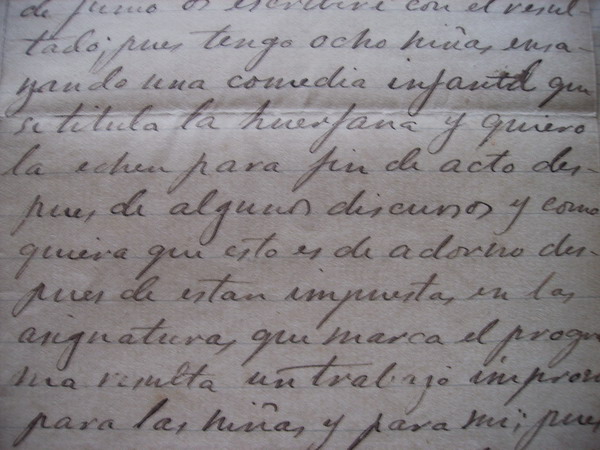 de junio os escribiré con el resul-
tado; pues tengo ocho niñas ensa-
yando una comedia infantil que
se titula la huerfana y quiero
la echen para fin de acto des-
pues de algunos discursos y como
quiera que esto es de adorno des-
pues de estar impuestas en las
asignaturas que marca el progra
ma resulta un trabajo impro
para las niñas y para mi; pues